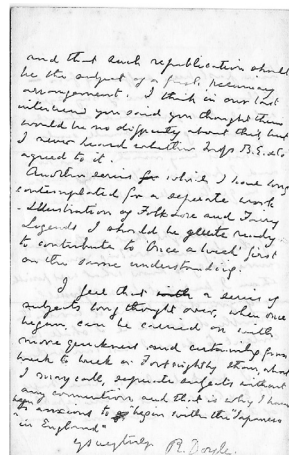 and that such republication should
be the subject of a first, pecuniary
arrangement. I think in our last
interview you said you thought there
would be no difficulty about this, but
I never heard whether Messrs B. E. & Co
agreed to it.
Another series for which I have long
contemplated for a separate work
- Illustration of Folklore and Fairy
Legends I should be quite ready
to contribute to Once a Week first
on the same understanding.
I feel that with a series of
subjects long thought over, when once
began, can be carried on with
more quickness and certainty from
week to week or Fortnightly than, what
I may call, separate subjects without
any connection, and that is why I have
been
so anxious to begin with the "Japanese
in England"
yrs very truly R. Doyle.